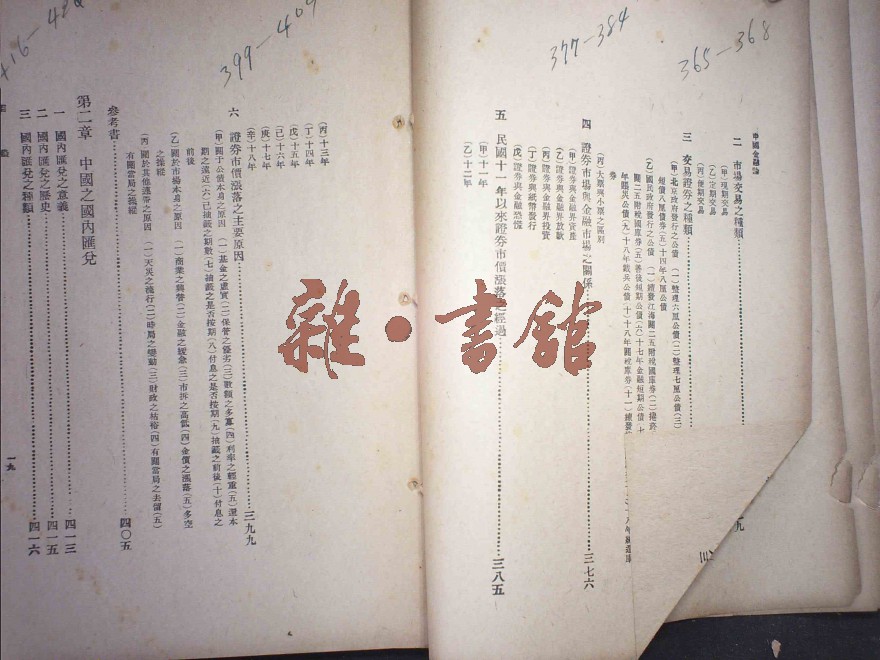 365-368
377-384
中國金融論
二 市場交易之種類
(甲)現期交易
(乙)定期交易
(丙)便期交易
三 交易證券之種類
(甲)北京政府發行之公債 (一)整理六厘公債(二)整理七厘公債(三)
短債八厘債券(五)十四年八厘公債
(乙)國民政府發行之公債 (一)續發江海關二五附稅國庫券(二)捲菸
關二五附稅國庫券(五)善後短期公債(六)十七年金融短期公債(七
年賑災公債(九)十八年裁兵公債(十)十八年關稅庫券(十一)續發
券
(丙)大票與小票之區別
四 證券市場與金融市場之關係 三七六
(甲)證券與金融界資產
(乙)證券與金融界放款
(丙)證券與金融界投資
(丁)證券與紙幣發行
(戊)證券與金融恐慌
五 民國十一年以來證券市價漲落之經過 三八五
(甲)十一年
(乙)十二年
399-409
(丙)十三年
(丁)十四年
(戊)十五年
(己)十六年
(庚)十七年
(辛)十八年
六 證券市價漲落之主要原因 三九九
(甲)關于公債本身之原因 (一)基金之虛實(二)保管之優劣(三)數額之多寡(四)利率之輕重(五)還本
期之遠近(六)已抽籤之期數(七)抽籤之是否按期(八)付息之是否按期(九)抽籤之前後(十)付息之
前後
(乙)關於市場本身之原因 (一)商業之興替(二)金融之緩急(三)市拆之高低(四)金價之漲落(五)多空
之操縱
(丙)關於其他連帶之原因 (一)天災之流行(二)時局之變動(三)財政之結裕(四)有關當局之去留(五)
有關當局之操縱
參考書 四〇五
第二章 中國之國內匯兌
一 國內匯兌之意義 四一三
二 國內匯兌之歷史 四一五
三 國內匯兌之種類 四一六
一九
雜·書館